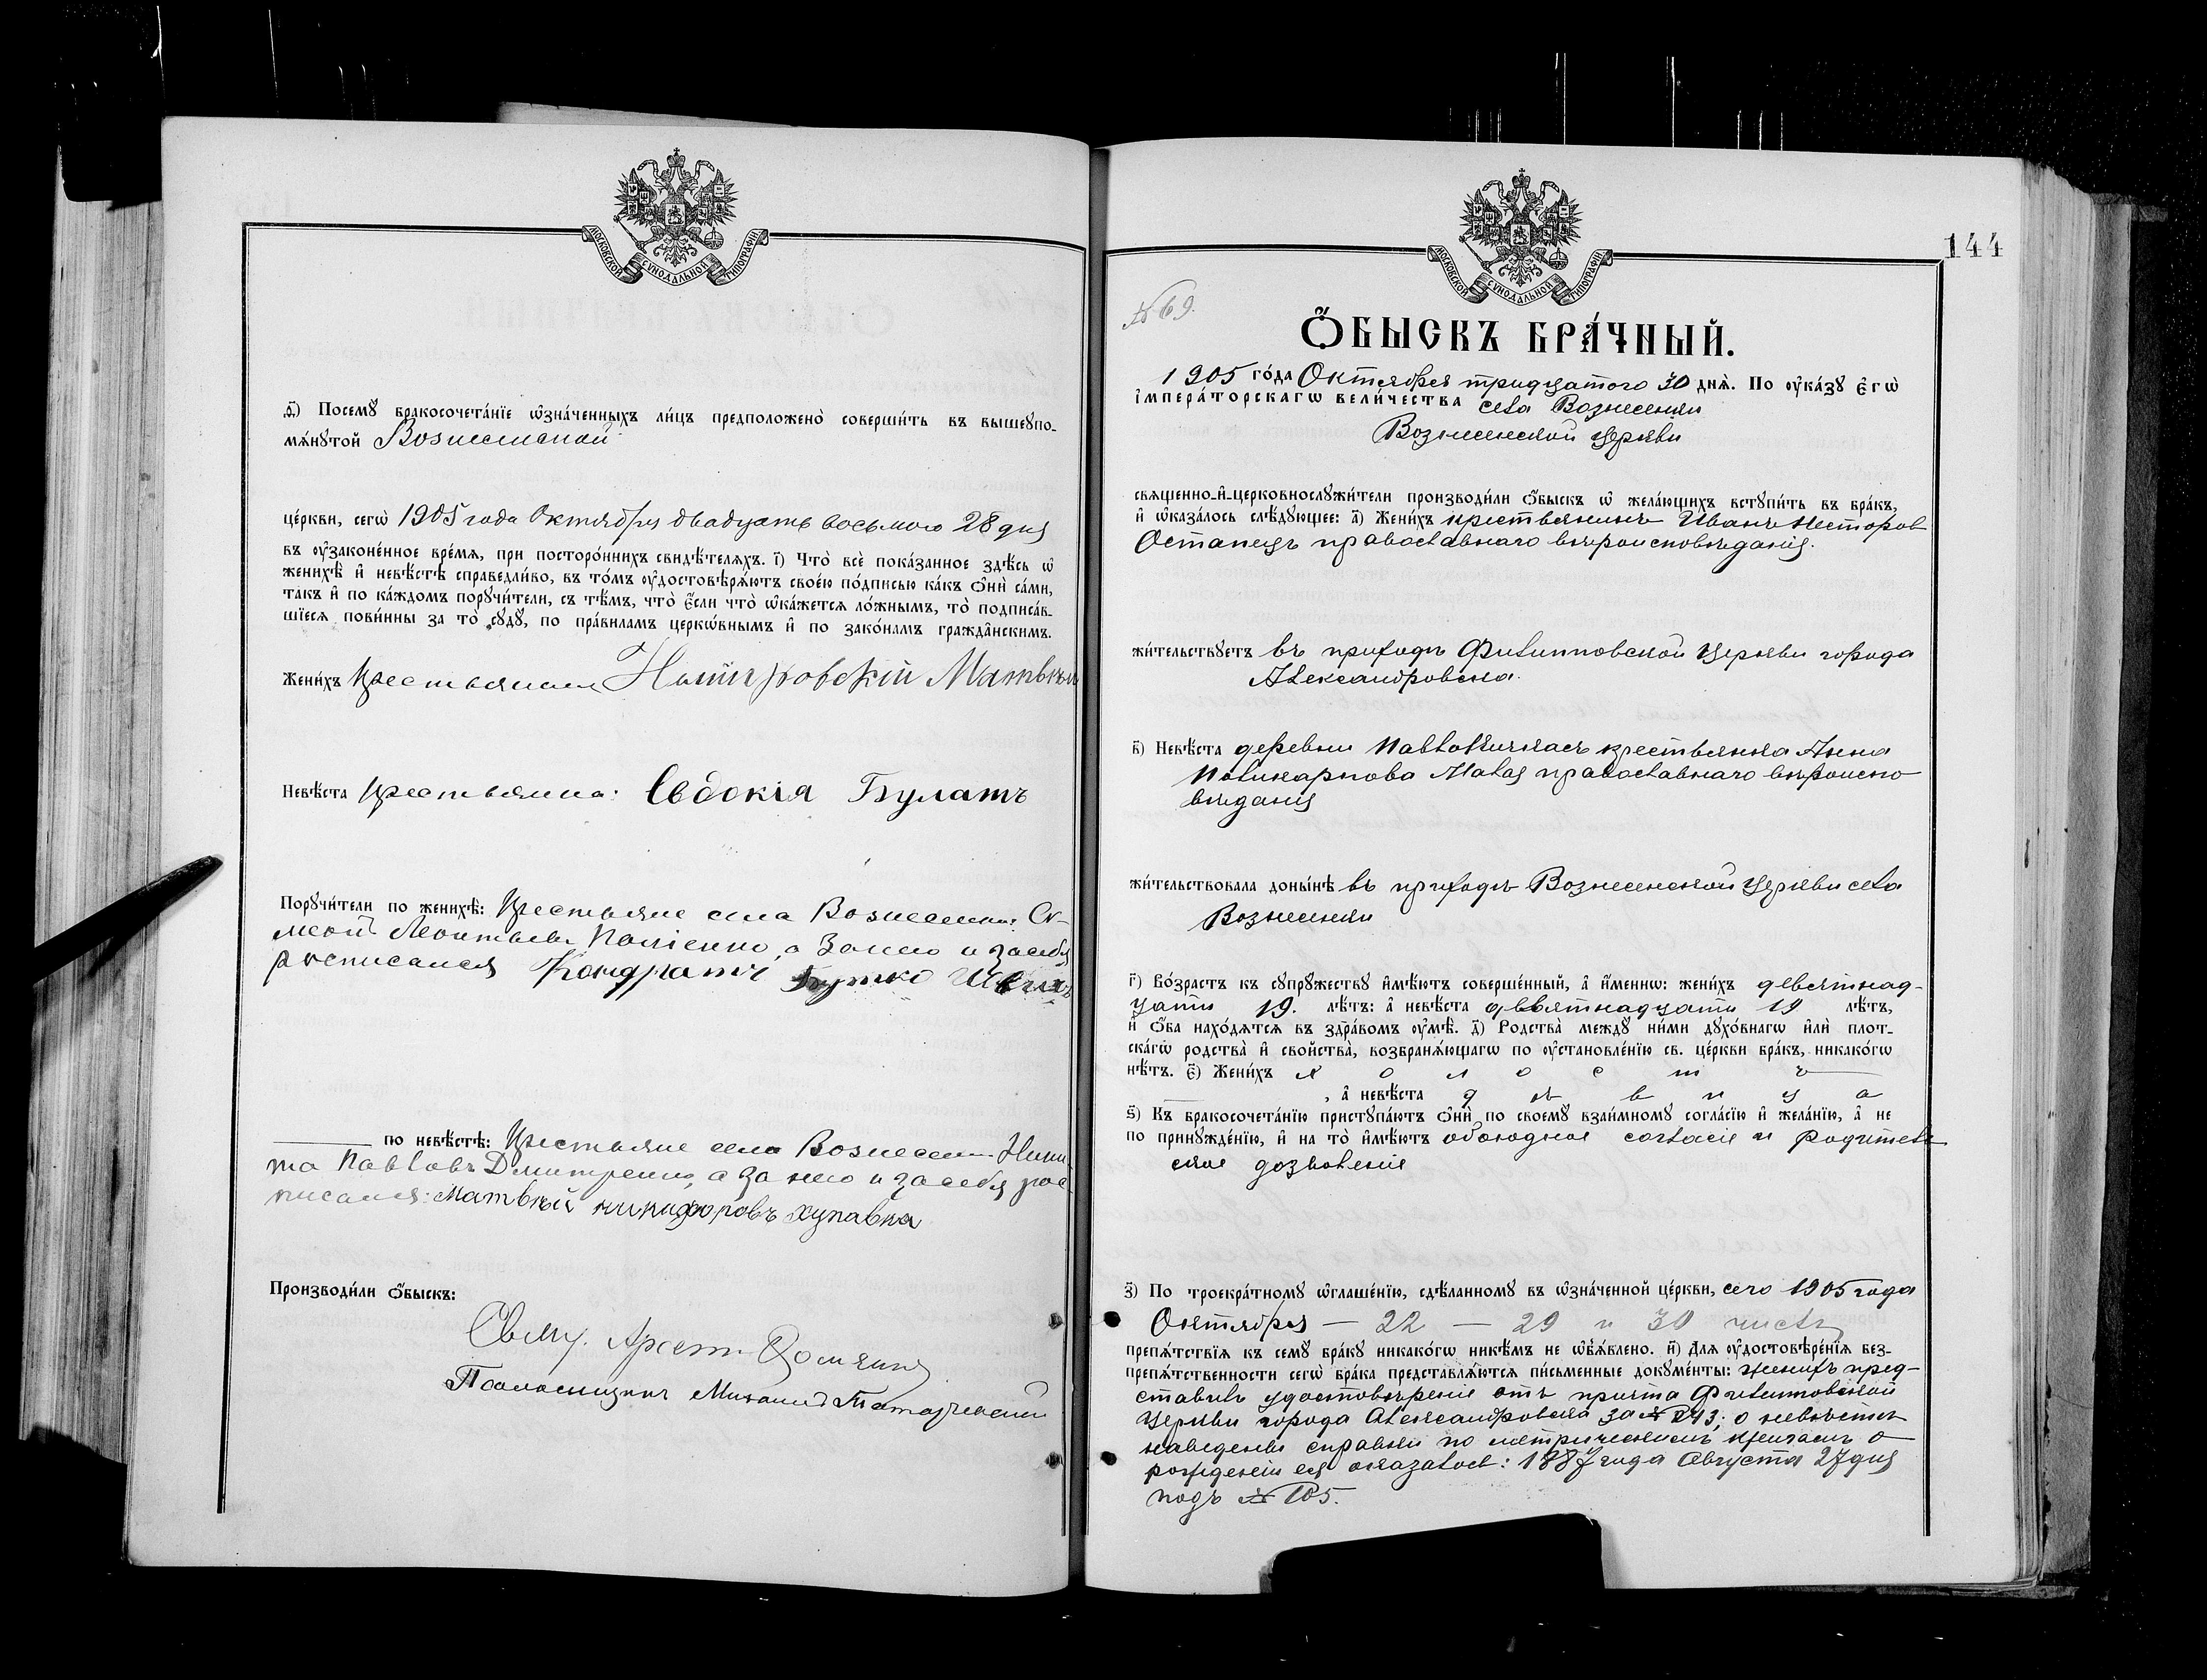 МОСКОВСКОЙ СѴНОДАЛЬНОЙ ТИПОГРАФІИ
ѳ҃) Посемꙋ бракосочета́нїе ѡ҆зна́ченныхъ ли́цъ предположено̀ соверши́ть въ вышеꙋпо-
мѧ́нꙋтой Вознесенской
це́ркви, сегѡ̀ 1905 года Октября двадцать восьмого 28 дня
въ ᲂу҆законе́нное вре́мѧ, при посторо́ннихъ свидѣ́телѧхъ. і҃) Что̀ всѐ пока́занное здѣ́сь ѡ҆
женихѣ̀ и҆ невѣ́стѣ справедли́во, въ то́мъ ᲂу҆достовѣрѧ́ютъ свое́ю по́дписью ка́къ ѻ҆нѝ са́ми,
та́къ и҆ по ка́ждомъ порꙋчи́тели, съ тѣ́мъ, что̀ є҆́сли что̀ ѡ҆ка́жетсѧ ло́жнымъ, то̀ подписа́в-
шїесѧ пови́нны за то̀ сꙋдꙋ̀, по пра́виламъ церкѡ́внымъ и҆ по зако́намъ гражда̂нскимъ.
Жени́хъ крестьянин Матвѣй
Невѣ́ста крестьянка: Евдокія Булатъ
Порꙋчи́тели по женихѣ̀: Крестьяне села Вознесенки: Се-
мен Леонтьевъ а за него и за себя
росписался Кондратъ Бутко
по невѣ́стѣ: Крестьяне села Вознесенки Ники-
та Павловъ Дмитренко, а за него и за себя рос-
писался: Матвѣй никифоровъ хупавка
Производи́ли ѻ҆́быскъ:
Свящ.
Псаломщикъ Михаилъ
144
МОСКОВСКОЙ СѴНОДАЛЬНОЙ ТИПОГРАФІИ
№ 69.
Ѻ҆́БЫСКЪ БРА́ЧНЫЙ.
1905 го́да Октября тридцатого 30 днѧ̀. По ᲂу҆ка́зꙋ є҆гѡ̀
і҆мпера́торскагѡ вели́чества села Вознесенки
Вознесенской церкви
свѧщенно-и҆-церковнослꙋжи́тели производи́ли ѻ҆́быскъ ѡ҆ жела́ющихъ встꙋпи́ть въ бра́къ,
и҆ ѡ҆каза́лось слѣ́дꙋющее: а҃) Жени́хъ крестьянинъ Иванъ Несторов
Остапецъ православнаго вѣроисповѣданія.
жи́тельствꙋетъ въ приходѣ Филипповской церкви города
Александровска.
в҃) Невѣ́ста деревни Павловкичкасъ крестьянка Анна
Поликарпова Малая православнаго вѣроиспо
вѣданія
жи́тельствовала доны́нѣ въ приходѣ Вознесенской церкви села
Вознесенки
г҃) Во́зрастъ къ сꙋпрꙋ́жествꙋ и҆мѣ́ютъ соверше́нный, а҆ и҆́менно: жени́хъ девятнад-
цати 19. лѣ́тъ: а҆ невѣ́ста девятнадцати 19 лѣ́тъ,
и҆ ѻ҆́ба нахо́дѧтсѧ въ здра́вомъ ᲂу҆мѣ̀. д҃) Родства̀ междꙋ̀ ни́ми дꙋхо́внагѡ и҆лѝ плот-
ска́гѡ родства̀ и҆ сво́йства̀, возбранѧ́ющагѡ по ᲂу҆становле́нїю св. це́ркви бра́къ, никако́гѡ
нѣ́тъ. є҃) Жени́хъ х о л о с т ъ
, а҆ невѣ́ста д ѣ в и ц а
ѕ҃) Къ бракосочета́нїю пристꙋпа́ютъ ѻ҆нѝ по своемꙋ̀ взаи́мномꙋ согла́сїю и҆ жела́нїю, а҆ не
по принꙋжде́нїю, и҆ на то̀ и҆мѣ́ютъ обоюдное согласіе и родитель
ское дозволеніе
з҃) По троекра́тномꙋ ѡ҆глаше́нїю, сдѣ́ланномꙋ въ ѡ҆зна́ченной це́ркви, сего 1905 года
Октября — 22 — 29 и 30 числъ
препѧ́тствїѧ къ семꙋ̀ бра́кꙋ никако́гѡ никѣ́мъ не ѡ҆б̾ѧ́влено. и҃) Длѧ ᲂу҆достовѣре́нїѧ без-
препѧ́тственности сегѡ̀ бра́ка представлѧ́ютсѧ пи́сьменные докꙋме́нты: женихъ пред-
ставилъ удостовѣреніе отъ причта Филипповской
церкви города Александровска за № 243; о невѣстѣ
наведены справки по метрическимъ книгамъ о
рожденіи ея оказалось: 1887 года Августа 27 дня
подъ № 105.